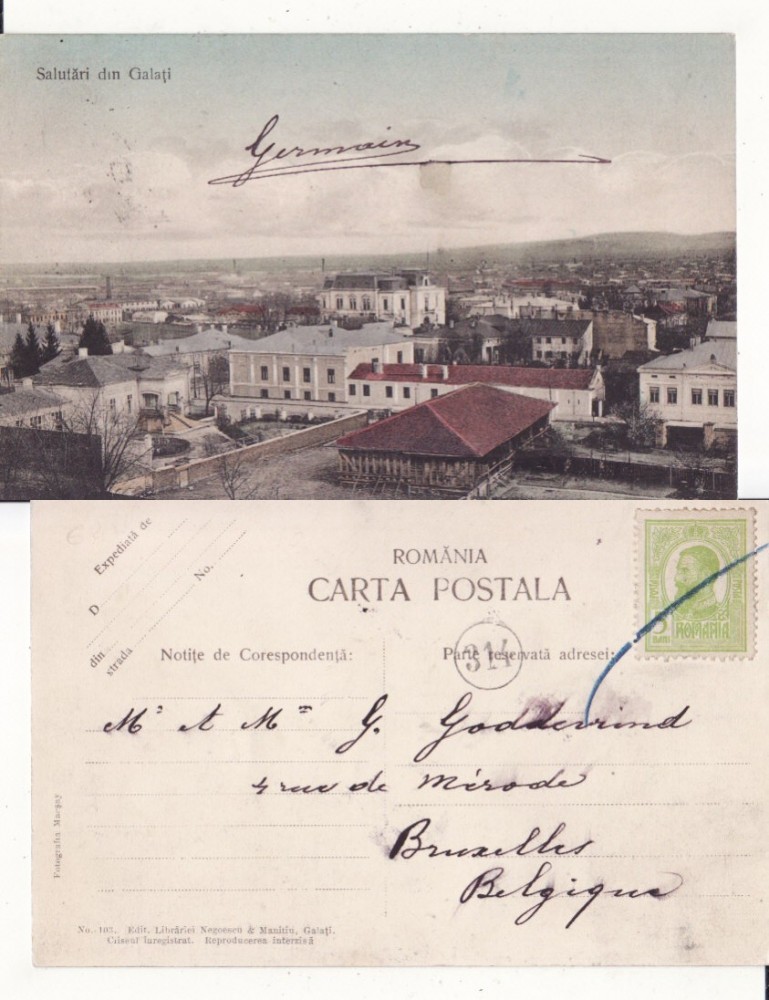 Salutări din Galați
Germain
Expediată de
D
No.
din
strada
ROMÂNIA
CARTA POSTALA
Notițe de Corespondență:
Parte rezervată adresei:
314
5
ROMANIA
Mr et Mme G. Goddevrind
4 rue de Mérode
Bruxelles
Belgique
Fotografia Macsay
No. 103. Edit. Librăriei Negoescu & Manițiu, Galați.
Clișeul înregistrat. Reproducerea interzisă